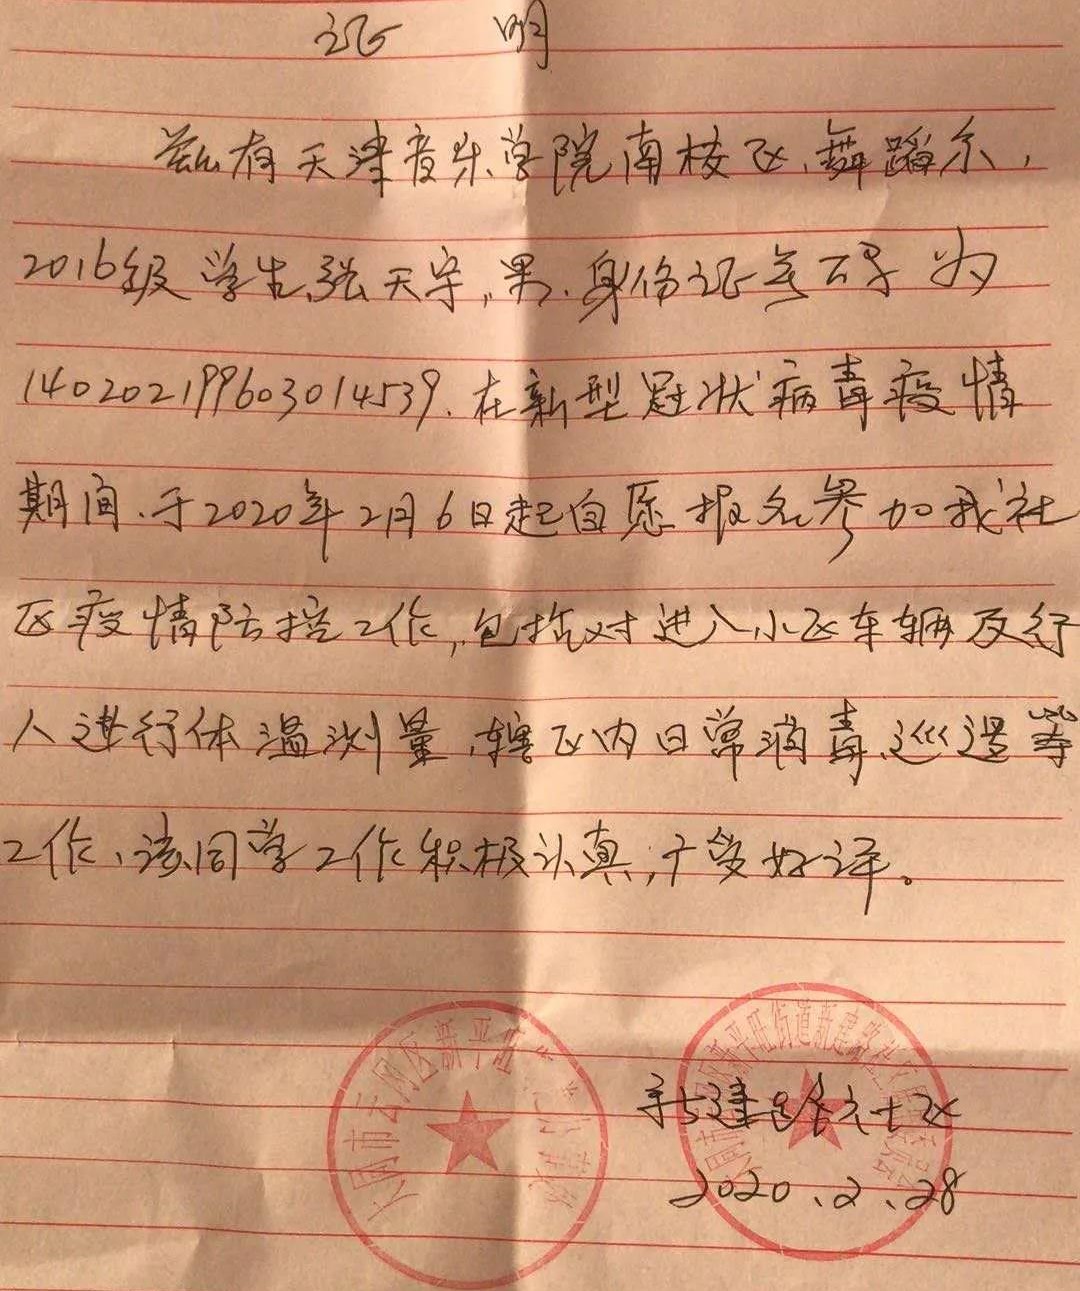 证 明
兹有天津音乐学院南校区、舞蹈系,
2016级学生张天宇,男、身份证号码为
140202199603014539.在新型冠状病毒疫情
期间、于2020年2月6日起自愿报名参加我社
区疫情防控工作,包括对进入小区车辆及行
人进行体温测量,辖区内日常消毒、巡逻等
工作、该同学工作积极认真,广受好评。
大同市云冈区新平旺
区新平旺街道新建路社区居
新建路社区
2020、2、28